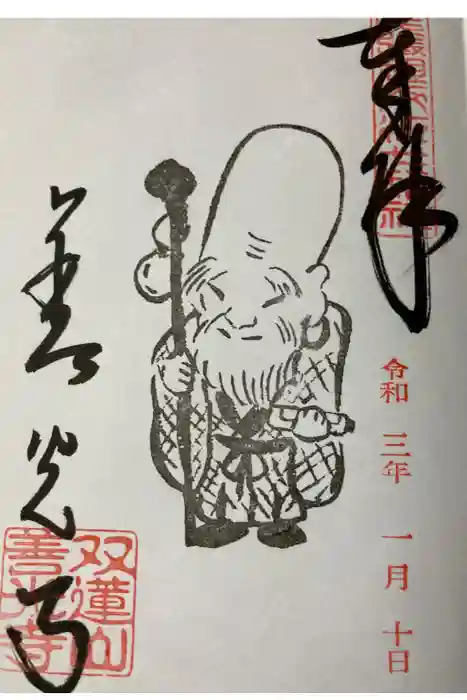 奉拝
令和三年 一月 十日
善光寺
双蓮山
善光寺